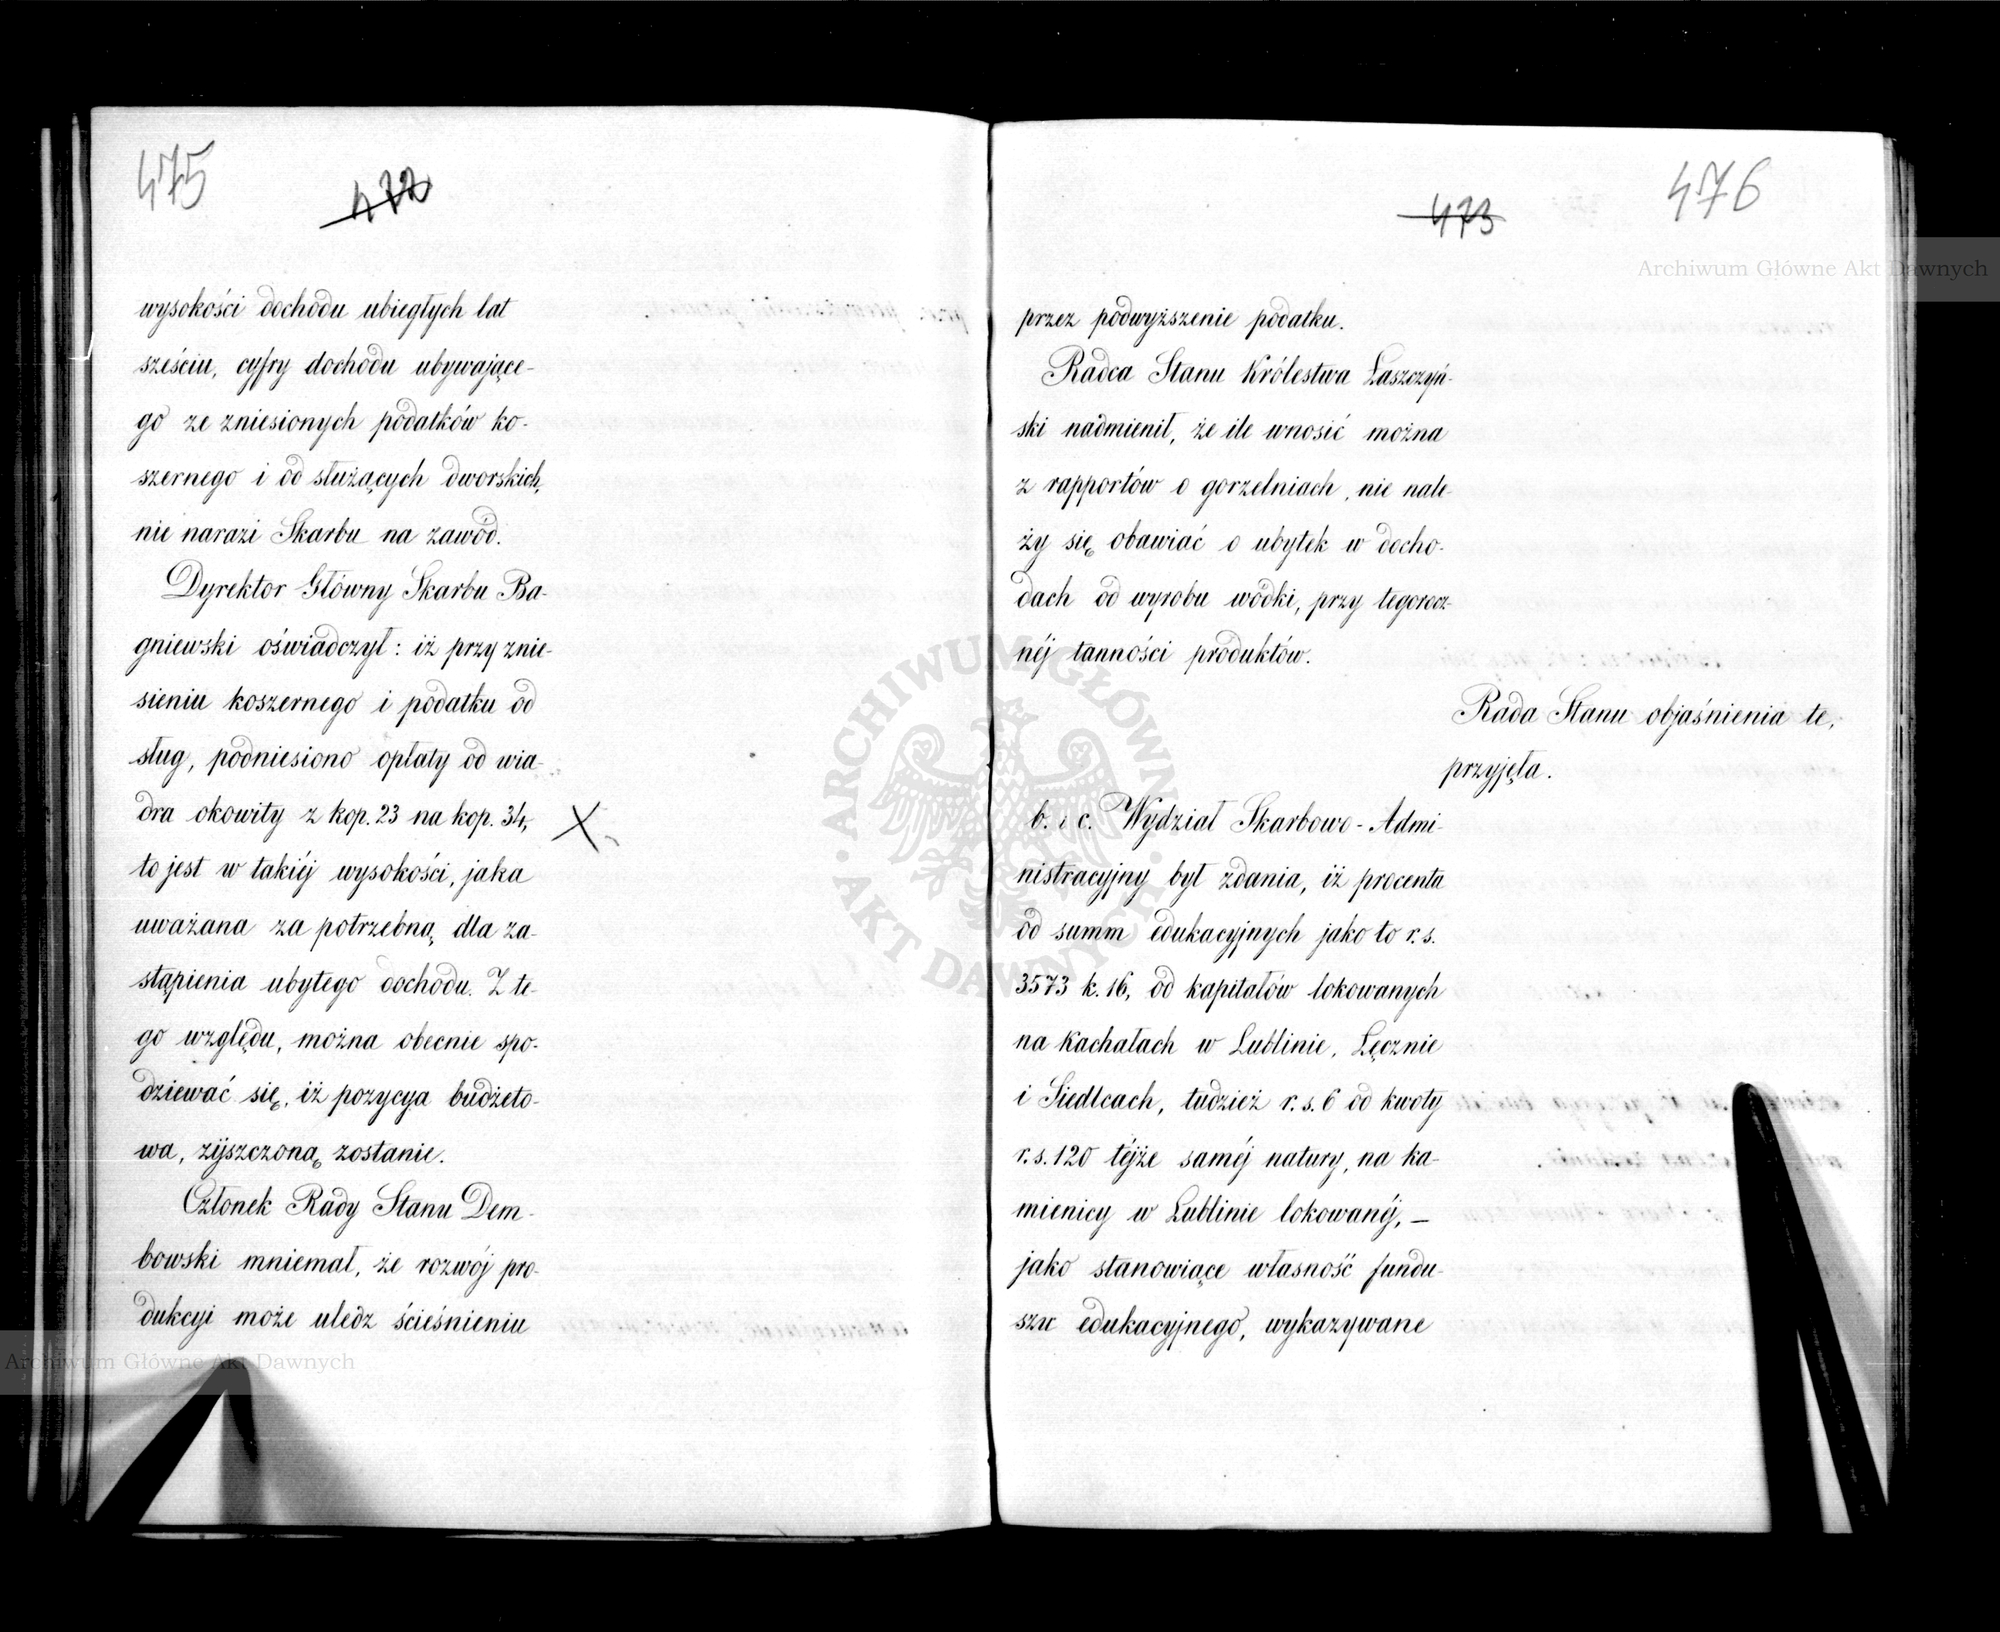 475
472
wysokości dochodu ubiegłych lat
sześciu, cyfry dochodu ubywające-
go ze zniesionych podatków ko-
szernego i od służących dworskich,
nie narazi Skarbu na zawód.
Dyrektor Główny Skarbu Ba-
gniewski oświadczył: iż przy znie-
sieniu koszernego i podatku od
sług, podniesiono opłaty od wia-
dra okowity z kop. 23 na kop. 34,
to jest w takiéj wysokości, jaka
uważana za potrzebną dla za-
stąpienia ubytego dochodu. Z te-
go względu, można obecnie spo-
dziewać się, iż pozycya budżeto-
wa, zyszczoną zostanie.
Członek Rady Stanu Dem-
bowski mniemał, że rozwój pro-
dukcyi może uledz ścieśnieniu
473
476
przez podwyższenie podatku.
Radca Stanu Królestwa Łaszczyń-
ski nadmienił, że ile wnosić można
z rapportów o gorzelniach, nie nale-
ży się obawiać o ubytek w docho-
dach od wyrobu wódki, przy tegorocz-
néj tanności produktów.
Rada Stanu objaśnienia te,
przyjęła.
b. i c. Wydział Skarbowo-Admi-
nistracyjny był zdania, iż procenta
od summ edukacyjnych jako to r.s.
3573 k. 16, od kapitałów lokowanych
na kachałach w Lublinie, Łęcznie
i Siedlcach, tudzież r.s. 6 od kwoty
r.s. 120 téjże saméj natury, na ka-
mienicy w Lublinie lokowanéj, —
jako stanowiące własność fundu-
szu edukacyjnego, wykazywane
Archiwum Główne Akt Dawnych
Archiwum Główne Akt Dawnych
ARCHIWUM GŁÓWNE · AKT DAWNYCH ·